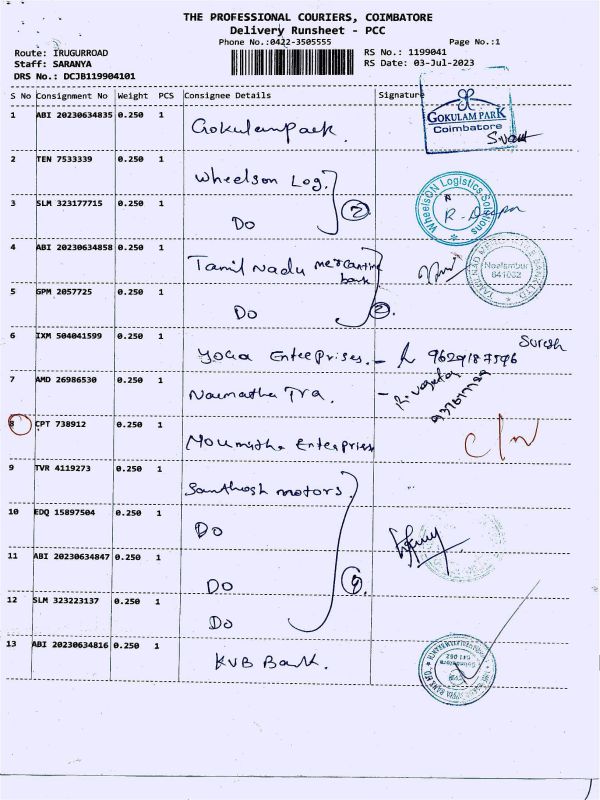 THE PROFESSIONAL COURIERS, COIMBATORE
Delivery Runsheet - PCC
Phone No.:0422-3505555 Page No.:1
Route: IRUGURROAD RS No.: 1199041
Staff: SARANYA RS Date: 03-Jul-2023
DRS No.: DCJB119904101
S No Consignment No Weight PCS Consignee Details Signature
1 ABI 20230634835 0.250 1 Gokulampark. GOKULAM PARK
Coimbatore
2 TEN 7533339 0.250 1 Wheelson Log. 2 WheelsON Logistics Solutions
3 SLM 323177715 0.250 1 Do R. Deepa
4 ABI 20230634858 0.250 1 Tamil Nadu mercantine bank Neelambur
641062
5 GPM 2057725 0.250 1 Do 2.
6 IXM 504041599 0.250 1 Yoga Enteeprises. - 9629187596 Suresh
7 AMD 26986530 0.250 1 Tra. -
8 CPT 738912 0.250 1 Enterprises C/N
9 TVR 4119273 0.250 1 Santhosh motors.
10 EDQ 15897504 0.250 1 Do
11 ABI 20230634847 0.250 1 Do
12 SLM 323223137 0.250 1 Do
13 ABI 20230634816 0.250 1 KVB Bank.